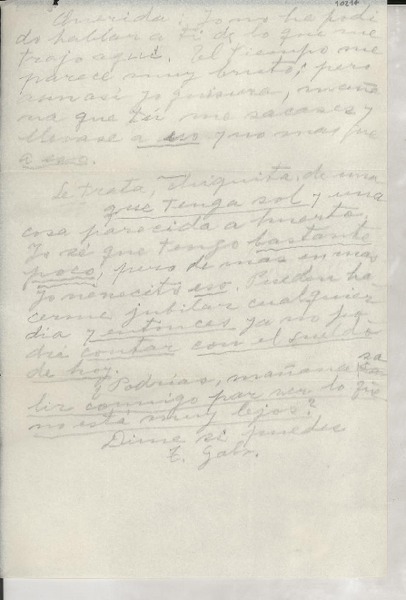 Querida: Yo no he podi
do hablar a ti de lo que me
trajo aquí. El tiempo me
parece muy bruto; pero
aun así yo quisiera, maña
na que tú me sacases y
llevase a eso y no mas que
a eso.
Se trata, Chiquita, de una
que tenga sol y una
cosa parecida a huerto.
Yo sé que tengo bastante
poco, pero de mas en mas
yo nenecito eso. Pueden ha
cerme jubilar cualquier
dia y entonces ya no po
dré contar con el sueldo
de hoy.
¿Podrías, mañana, sa
lir conmigo par ver lo que
no está muy lejos?
Dime si puedes
T. Gabr.